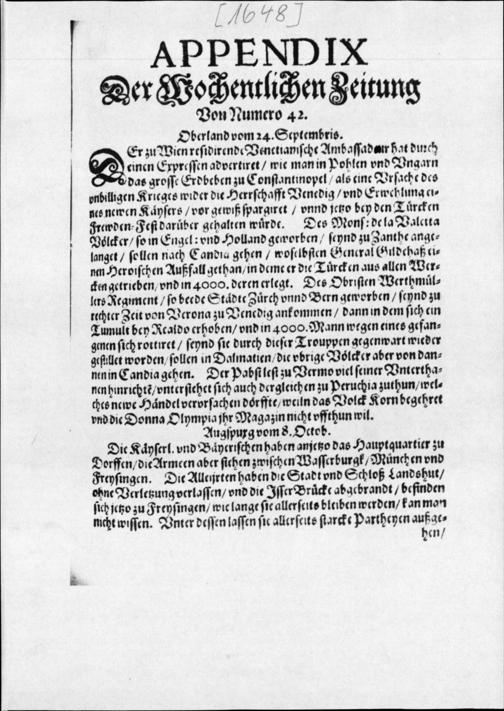 [1648]
APPENDIX
Der Wochentlichen Zeitung
Von Numero 42.
Oberland vom 24. Septembris.
DEr zu Wien residirende Venetianische Ambassadeur hat durch
einen Expressen advertiret / wie man in Pohlen und Vngarn
das grosse Erdbeben zu Constantinopel / als eine Vrsache des
vnbilligen Krieges wider die Herrschafft Venedig / vnd Erwehlung ei-
nes newen Käysers / vor gewiß spargiret / vnnd jetzo bey den Türcken
Frewden-Fest darüber gehalten würde. Des Mons: de la Valetta
Völcker / so in Engel: vnd Holland geworben / seynd zu Zanthe ange-
langet / sollen nach Candia gehen / woselbsten General Gildehaß ei-
nen Heroischen Außfall gethan / in deme er die Türcken aus allen Wer-
cken getrieben / vnd in 4000. deren erlegt. Des Obristen Werthmül-
lers Regiment / so beede Städte Zürch vnnd Bern geworben / seynd zu
rechter Zeit von Verona zu Venedig ankommen / dann in dem sich ein
Tumult bey Realdo erhoben / vnd in 4000. Mann wegen eines gefan-
genen sich rottiret / seynd sie durch dieser Trouppen gegenwart wieder
gestillet worden / sollen in Dalmatien / die vbrige Völcker aber von dan-
nen in Candia gehen. Der Pabst lest zu Vermo viel seiner Vntertha-
nen hinrichtē / vnterstehet sich auch dergleichen zu Peruchia zuthun / wel-
ches newe Händel verorsachen dörffte / weiln das Volck Korn begehret
vnd die Donna Olympia jhr Magazin nicht offthun wil.
Augspurg vom 8. Octob.
Die Käyserl. vnd Bäyerischen haben anjetzo das Hauptquartier zu
Dorffen / die Armeen aber stehen zwischen Wasserburgk / München vnd
Freysingen. Die Alleirten haben die Stadt vnd Schloß Landshut /
ohne Verletzung verlassen / vnd die Jsser Brücke abgebrandt / befinden
sich jetzo zu Freysingen / wie lange sie allerseits bleiben werden / kan man
nicht wissen. Vnter dessen lassen sie allerseits starcke Partheyen außge-
hen /